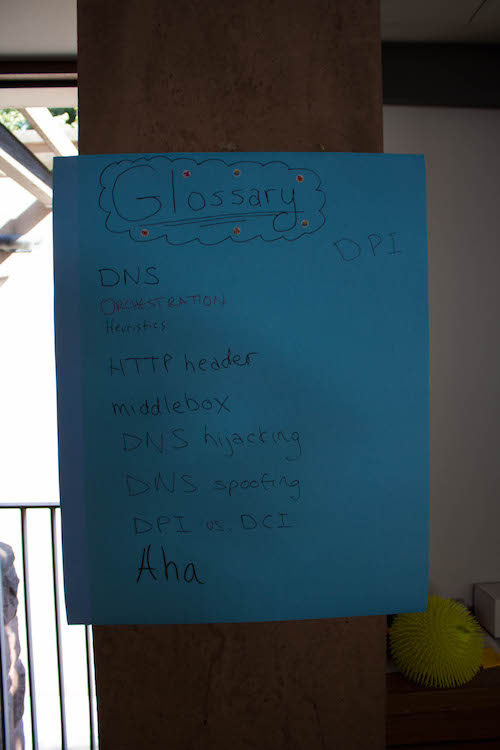 Glossary
DPI
DNS
ORCHESTRATION
Heuristics
HTTP header
middlebox
DNS hijacking
DNS spoofing
DPI vs. DCI
Aha